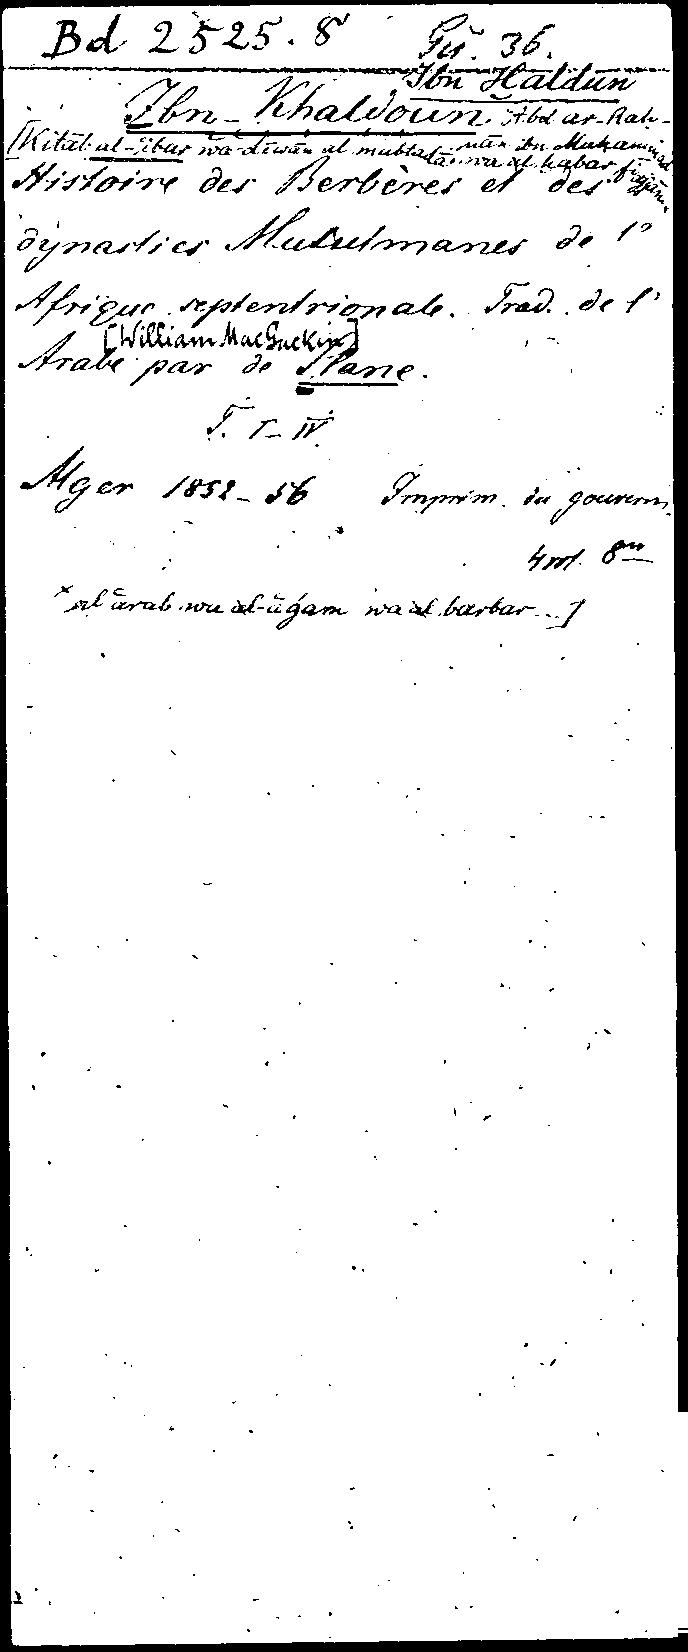 Bd 2525.8 Gü. 36.
Ibn Haldūn
Ibn-Khaldoun. Abd ar-Rah-
mān ibn Muhammad
[Kitāb al-ibar wa-dīwān al mubtadā wa al habar fī ajjām x
Histoire des Berbères et des
dynasties Musulmanes de l'
Afrique septentrionale. Trad. de l'
[William MacGuckin]
Arabe par de Slane.
T. I-IV.
Alger 1852-56 Imprim. du gouvern.
8°
x al àrab wa al-àǵam wa al barbar...]